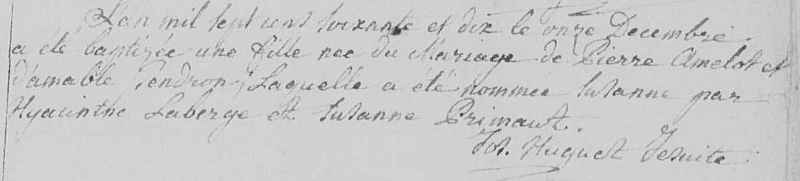 L'an mil sept cens soixante et dix le onze Decembre
a eté baptizée une fille nee du Mariage de Pierre Amelot et
d'amable Gendron, Laquelle a été nommee Susanne par
Hyacinthe Laberge et Susanne Primaut.
Jos. Huguet Jesuite